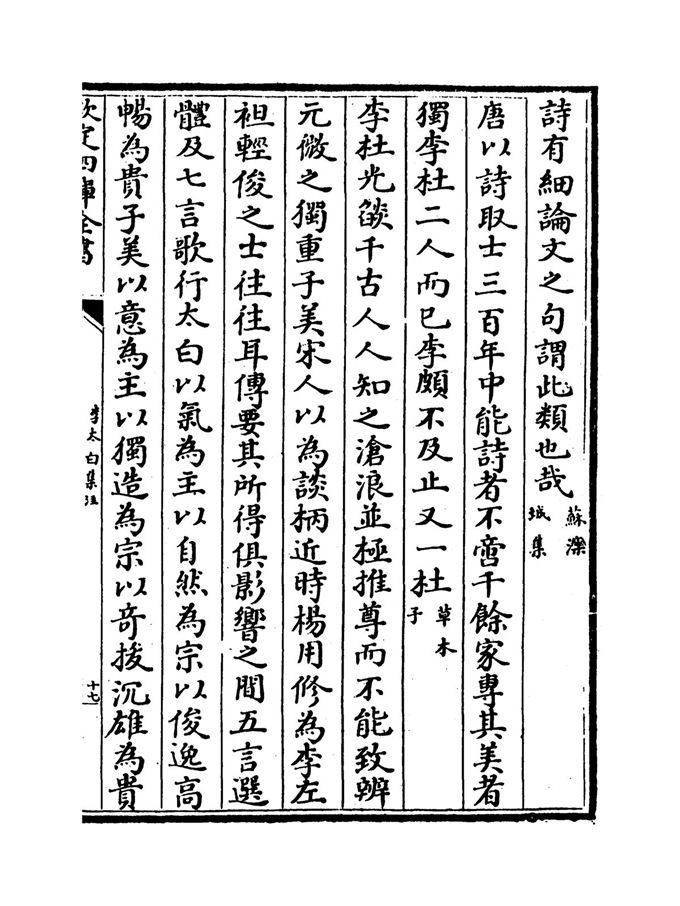 詩有細論文之句謂此類也哉蘇灤城集
唐以詩取士三百年中能詩者不啻千餘家專其美者
獨李杜二人而已李頗不及止又一杜草木子
李杜光燄千古人人知之滄浪並極推尊而不能致辨
元微之獨重子美宋人以為談柄近時楊用修為李左
袒輕俊之士往往耳傳要其所得俱影響之間五言選
體及七言歌行太白以氣為主以自然為宗以俊逸高
暢為貴子美以意為主以獨造為宗以奇拔沉雄為貴
欽定四庫全書
李太白集注
十七